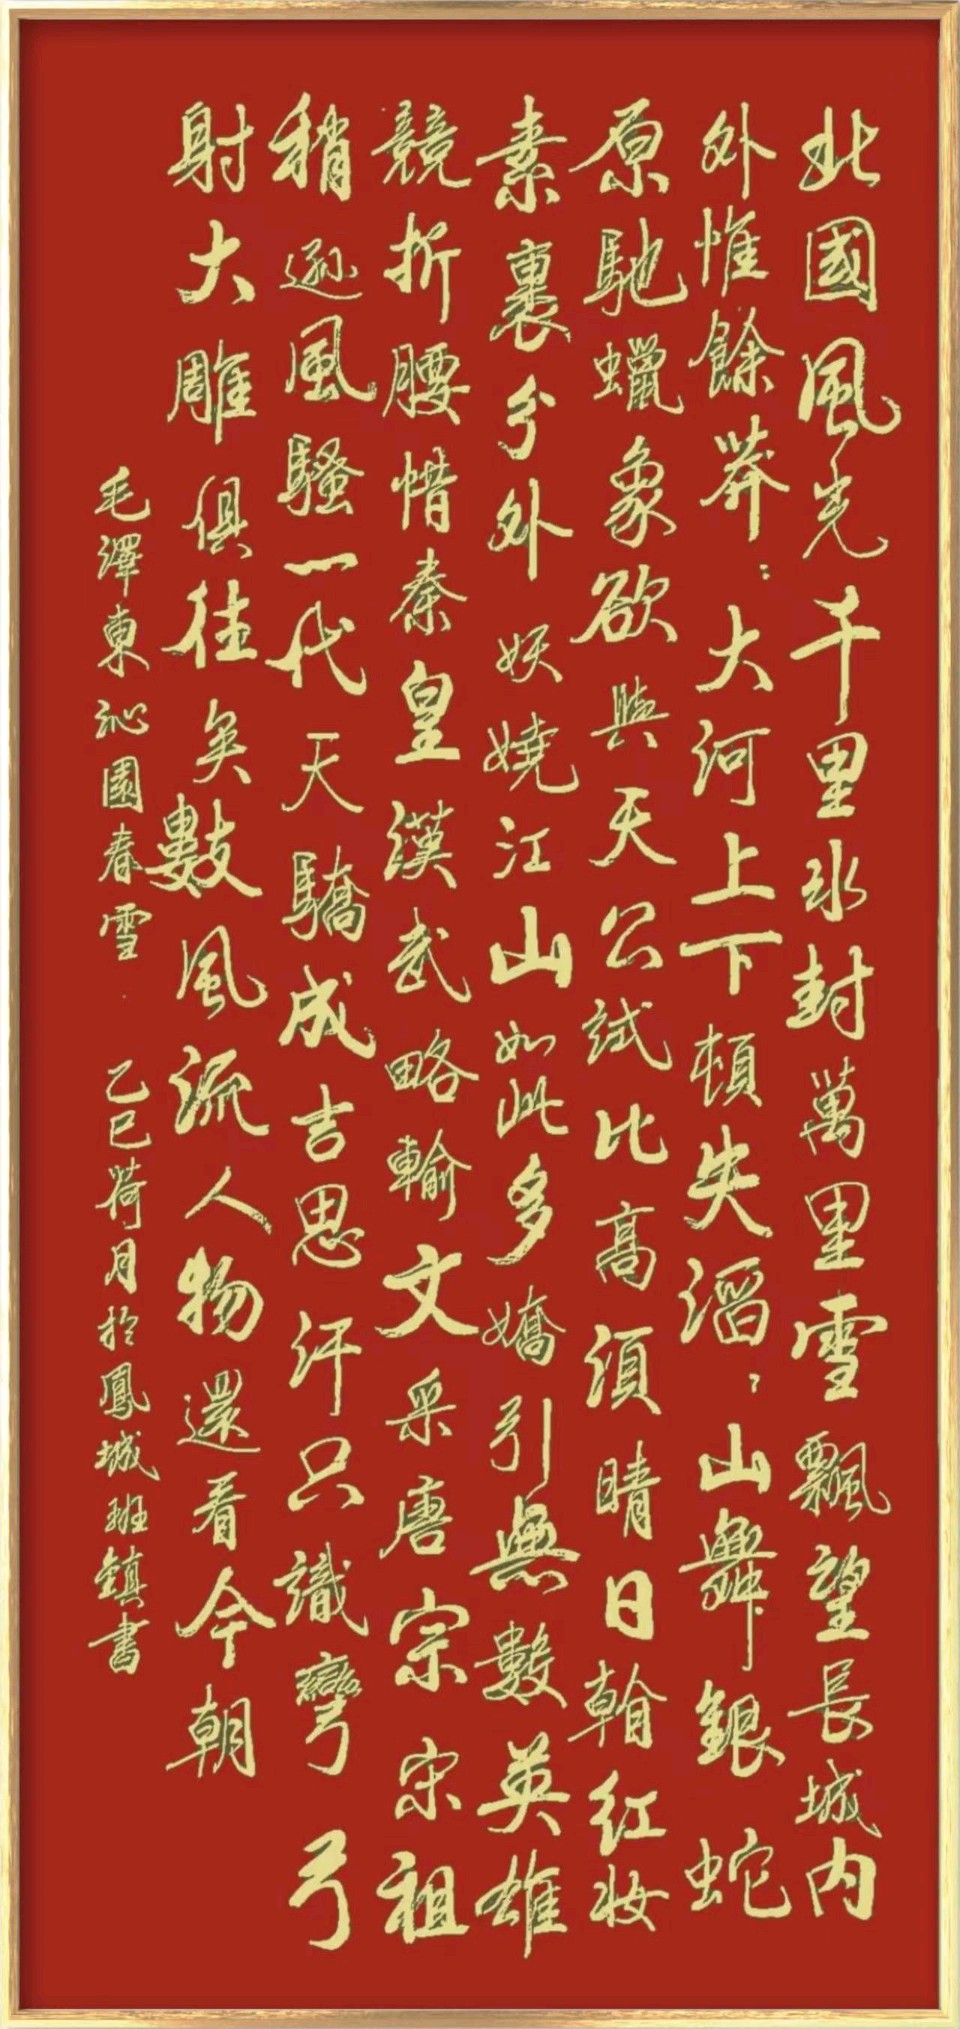 北國風光千里冰封萬里雪飄望長城内
外惟餘莽〻大河上下頓失滔〻山舞銀蛇
原馳蠟象欲與天公試比高須晴日看红妝
素裹分外妖嬈江山如此多嬌引無數英雄
競折腰惜秦皇漢武略輸文采唐宗宋祖
稍遜風騷一代天驕成吉思汗只識彎弓
射大雕俱往矣數風流人物還看今朝
毛澤東沁園春雪 乙巳荷月於鳳城班鎮書